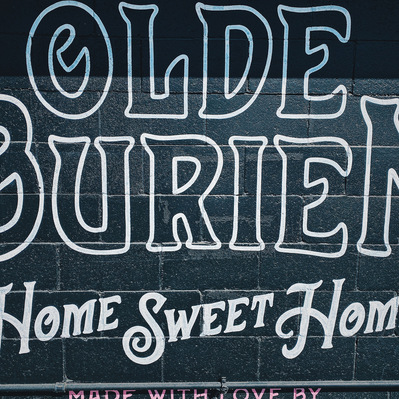 OLDE
BURIEN
HOME SWEET HOM
MADE WITH LOVE BY